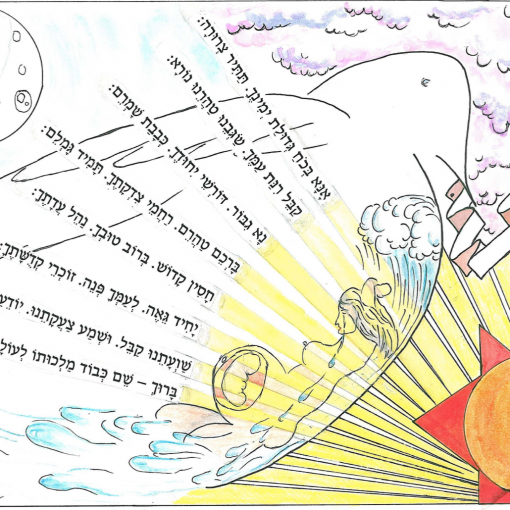 אָנָּא בְּכֹחַ גְּדוּלַת יְמִינֶךָ. תַּתִּיר צְרוּרָה:
קַבֵּל רִנַּת עַמֶּךָ. שַׂגְּבֵנוּ טַהֲרֵנוּ נוֹרָא:
נָא גִבּוֹר. דּוֹרְשֵׁי יִחוּדֶךָ. כְּבָבַת שָׁמְרֵם:
בָּרְכֵם טַהֲרֵם. רַחֲמֵי צִדְקָתֶךָ. תָּמִיד גָּמְלֵם:
חֲסִין קָדוֹשׁ. בְּרוֹב טוּבְךָ. נַהֵל עֲדָתֶךָ:
יָחִיד גֵּאֶה. לְעַמְּךָ פְּנֵה. זוֹכְרֵי קְדֻשָּׁתֶךָ:
שַׁוְעָתֵנוּ קַבֵּל. וּשְׁמַע צַעֲקָתֵנוּ. יוֹדֵעַ
בָּרוּךְ – שֵׁם כְּבוֹד מַלְכוּתוֹ